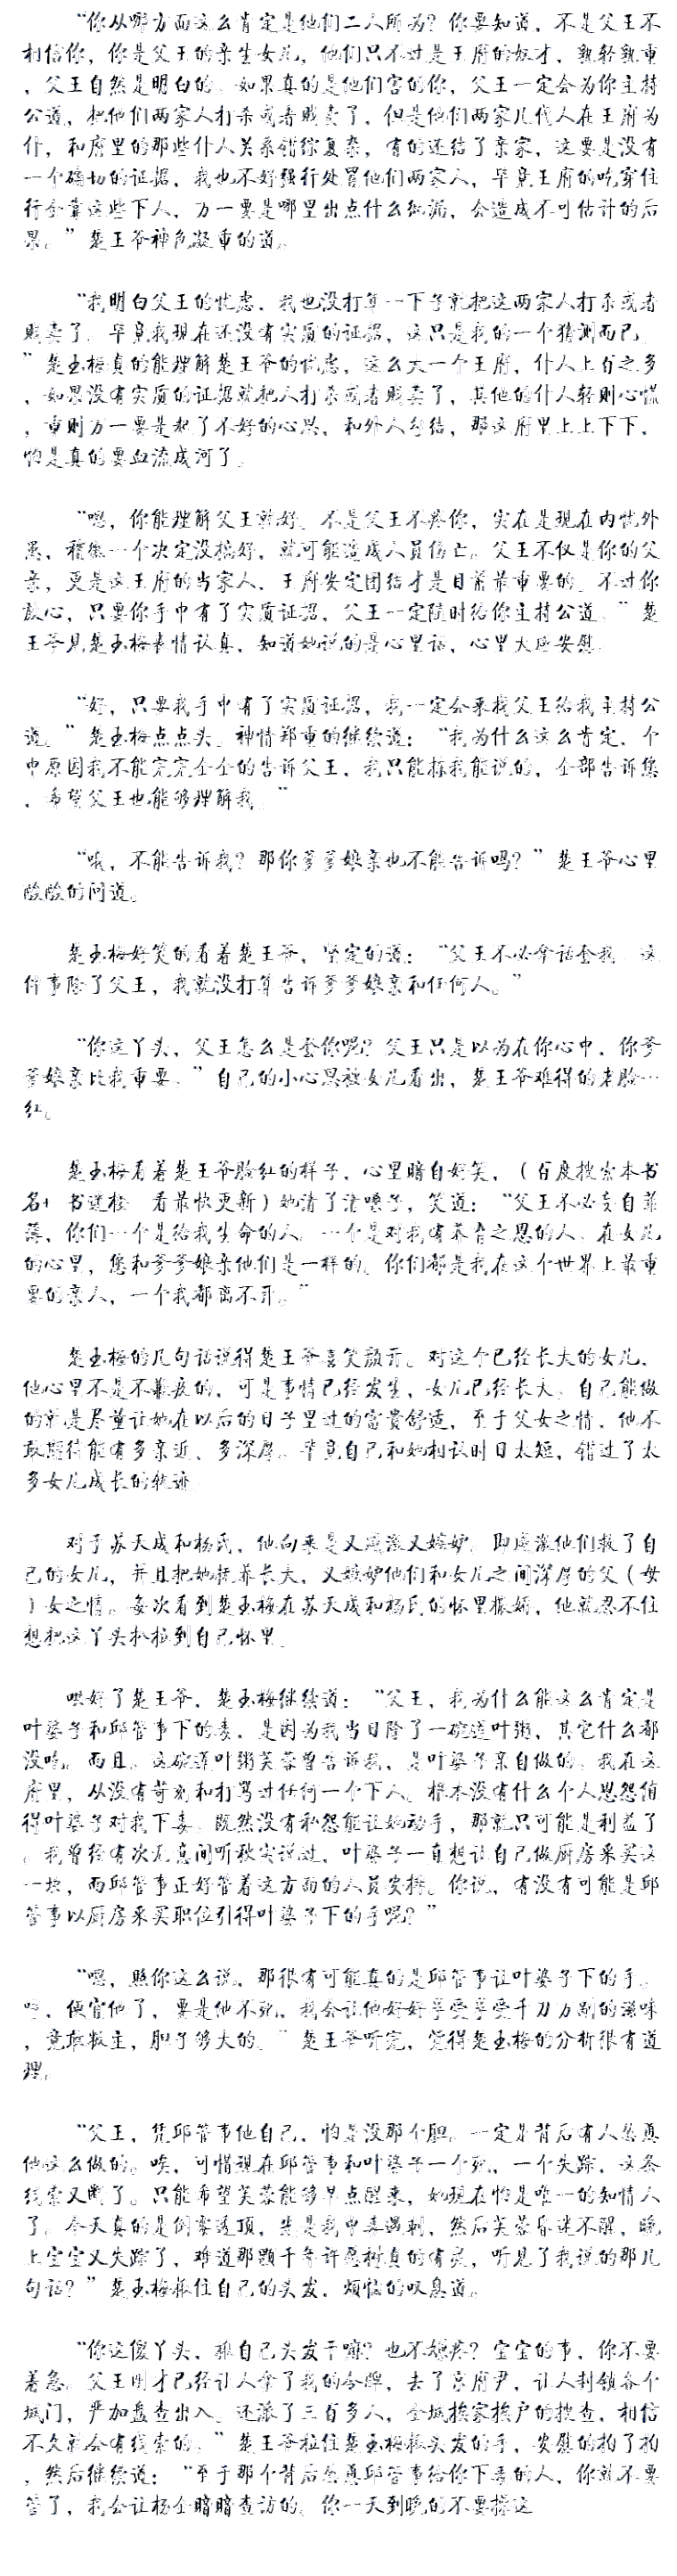 “你从哪方面这么肯定是他们二人所为？你要知道，不是父王不
相信你，你是父王的亲生女儿，他们只不过是王府的奴才，孰轻孰重
，父王自然是明白的。如果真的是他们害的你，父王一定会为你主持
公道，把他们两家人打杀或者贱卖了，但是他们两家几代人在王府为
仆，和府里的那些仆人关系错综复杂，有的还结了亲家，这要是没有
一个确切的证据，我也不好强行处置他们两家人，毕竟王府的吃穿住
行全靠这些下人，万一要是哪里出点什么纰漏，会造成不可估计的后
果。”楚王爷神色凝重的道。
“我明白父王的忧虑，我也没打算一下子就把这两家人打杀或者
贱卖了。毕竟我现在还没有实质的证据，这只是我的一个猜测而已。
”楚玉梅真的能理解楚王爷的忧虑，这么大一个王府，仆人上百之多
，如果没有实质的证据就把人打杀或者贱卖了，其他的仆人轻则心慌
，重则万一要是起了不好的心思，和外人勾结，那这府里上上下下，
怕是真的要血流成河了。
“嗯，你能理解父王就好。不是父王不疼你，实在是现在内忧外
患，稍微一个决定没搞好，就可能造成人员伤亡。父王不仅是你的父
亲，更是这王府的当家人，王府安定团结才是目前最重要的。不过你
放心，只要你手中有了实质证据，父王一定随时给你主持公道。”楚
王爷见楚玉梅表情认真，知道她说的是心里话，心里大感安慰。
“好，只要我手中有了实质证据，我一定会来找父王给我主持公
道。”楚玉梅点点头，神情郑重的继续道：“我为什么这么肯定，个
中原因我不能完完全全的告诉父王，我只能拣我能说的，全部告诉您
，希望父王也能够理解我。”
“哦，不能告诉我？那你爹爹娘亲也不能告诉吗？”楚王爷心里
酸酸的问道。
楚玉梅好笑的看着楚王爷，坚定的道：“父王不必拿话套我，这
件事除了父王，我就没打算告诉爹爹娘亲和任何人。”
“你这丫头，父王怎么是套你呢？父王只是以为在你心中，你爹
爹娘亲比我重要。”自己的小心思被女儿看出，楚王爷难得的老脸一
红。
楚玉梅看着楚王爷脸红的样子，心里暗自好笑，（百度搜索本书
名+ 书迷楼 看最快更新）她清了清嗓子，笑道：“父王不必妄自菲
薄，你们一个是给我生命的人，一个是对我有养育之恩的人，在女儿
的心里，您和爹爹娘亲他们是一样的。你们都是我在这个世界上最重
要的亲人，一个我都离不开。”
楚玉梅的几句话说得楚王爷喜笑颜开。对这个已经长大的女儿，
他心里不是不歉疚的，可是事情已经发生，女儿已经长大，自己能做
的就是尽量让她在以后的日子里过的富贵舒适，至于父女之情，他不
敢期待能有多亲近、多深厚。毕竟自己和她相认时日太短，错过了太
多女儿成长的轨迹。
对于苏天成和杨氏，他向来是又感激又嫉妒。即感激他们救了自
己的女儿，并且把她抚养长大，又嫉妒他们和女儿之间深厚的父（母
）女之情。每次看到楚玉梅在苏天成和杨氏的怀里撒娇，他就忍不住
想把这丫头扒拉到自己怀里。
哄好了楚王爷，楚玉梅继续道：“父王，我为什么能这么肯定是
叶婆子和邱管事下的毒，是因为我当日除了一碗莲叶粥，其它什么都
没吃。而且，这碗莲叶粥芙蓉曾告诉我，是叶婆子亲自做的。我在这
府里，从没有苛刻和打骂过任何一个下人。根本没有什么个人恩怨值
得叶婆子对我下毒。既然没有私怨能让她动手，那就只可能是利益了
。我曾经有次无意间听秋实说过，叶婆子一直想让自己做厨房采买这
一块，而邱管事正好管着这方面的人员安排。你说，有没有可能是邱
管事以厨房采买职位引得叶婆子下的手呢？”
“嗯，照你这么说，那很有可能真的是邱管事让叶婆子下的手。
哼，便宜他了，要是他不死，我会让他好好享受享受千刀万剐的滋味
，竟敢叛主，胆子够大的。”楚王爷听完，觉得楚玉梅的分析很有道
理。
“父王，凭邱管事他自己，怕是没那个胆。一定是背后有人怂恿
他这么做的。唉，可惜现在邱管事和叶婆子一个死，一个失踪，这条
线索又断了。只能希望芙蓉能够早点醒来，她现在怕是唯一的知情人
了。今天真的是倒霉透顶，先是我中毒遇刺，然后芙蓉昏迷不醒，晚
上宝宝又失踪了，难道那颗千年许愿树真的有灵，听见了我说的那几
句话？”楚玉梅揪住自己的头发，烦恼的叹息道。
“你这傻丫头，揪自己头发干嘛？也不嫌疼？宝宝的事，你不要
着急。父王刚才已经让人拿了我的令牌，去了京府尹，让人封锁各个
城门，严加盘查出入。还派了三百多人，全城挨家挨户的搜查，相信
不久就会有线索的。”楚王爷拉住楚玉梅揪头发的手，安慰的拍了拍
，然后继续道：“至于那个背后怂恿邱管事给你下毒的人，你就不要
管了，我会让杨全暗暗查访的。你一天到晚的不要操这